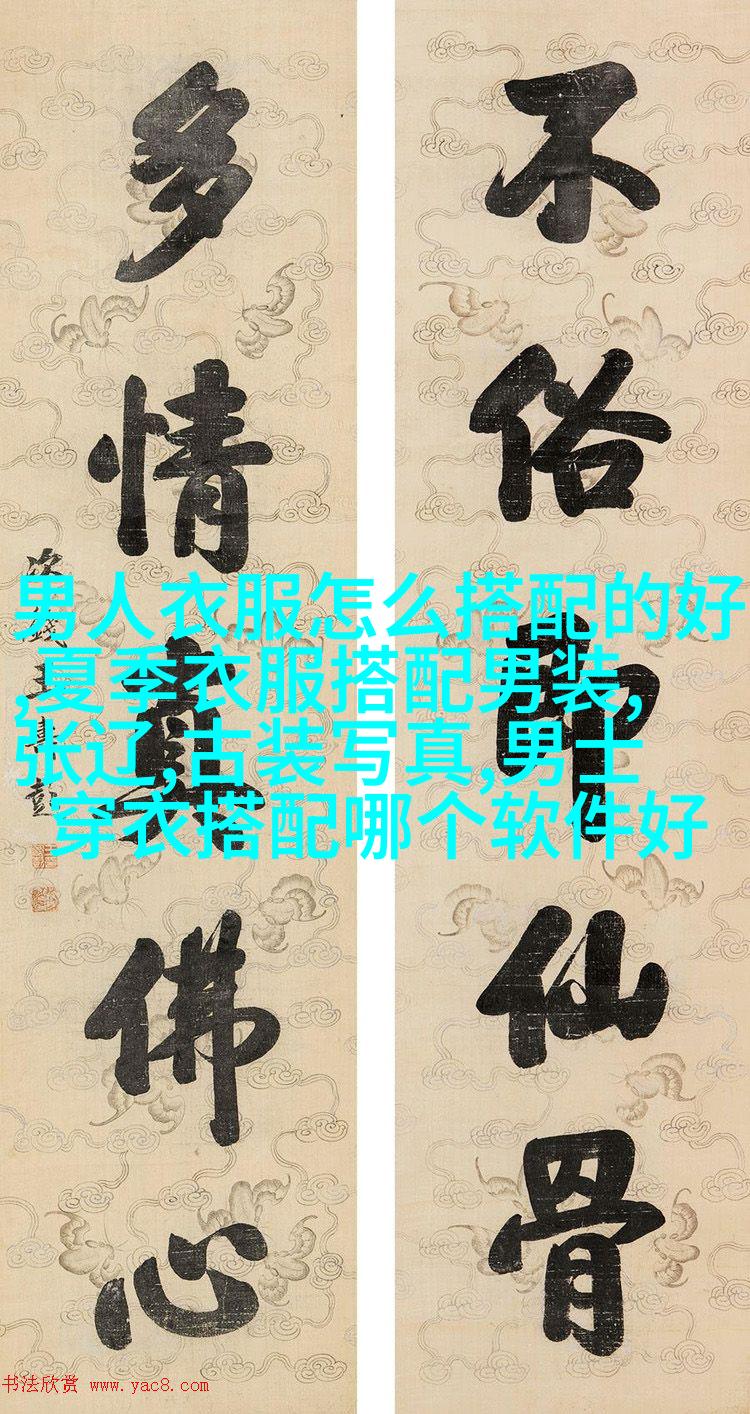 不俗即仙骨
多情真佛心
次籛王壽彭
男人衣服怎么搭配的好
,夏季衣服搭配男装,
张辽,古装写真,男士
穿衣搭配哪个软件好
书法欣赏 www.yac8.com